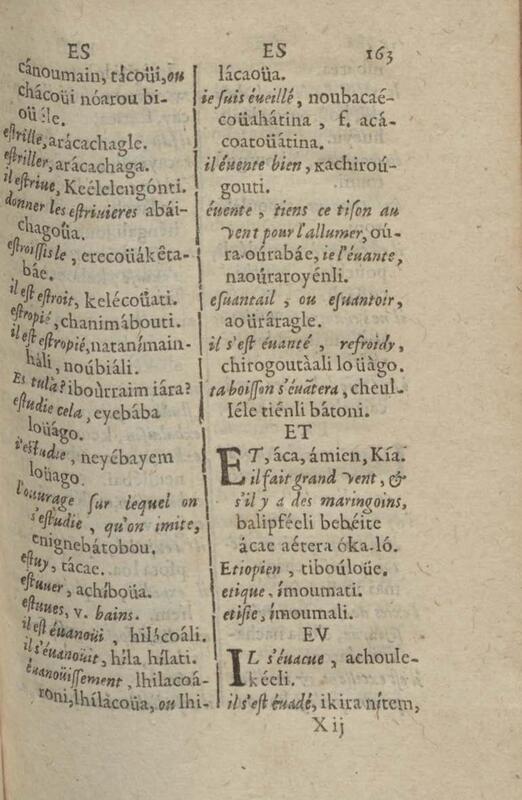 ES ES 163
cánoumain, tácoüi, ou
chácoüi nóarou bi-
oüéle.
estrille, arácachagle.
estriller, arácachaga.
il estriue, Keélelengónti.
donner les estriuieres abái-
chagoüa.
estroissisle, erecoüákêta-
báe.
il est estroit, kelécoüati.
estropié, chanimábouti.
il est estropié, natanímain-
háli, noúbiáli.
Es tu là? iboùrraim iára?
estudie cela, eyebába
loüágo.
i'estudie, neyébayem
loüago.
l'ouurage sur lequel on
s'estudie, qu'on imite,
enignebátobou.
estuy, tácae.
estuuer, achíboüa.
estuues, v. bains.
il est éuanoüi, hilácoáli.
il s'éuanoüit, híla hílati.
éuanoüissement, lhilacoá-
roni, lhílácoüa, ou lhi-
lácaoüa.
ie suis éueillé, noubacaé-
coüahátina, f, acá-
coatoüátina.
il éuente bien, kachiroú-
gouti.
éuente, tiens ce tison au
vent pour l'allumer, oú-
ra oúrabáe, ie l'éuante,
naoúraroyénli.
esuantail, ou esuantoir,
aoüráragle.
il s'est éuanté, refroidy,
chirogoutàali loüàgo.
ta boisson s'éuãtera, cheul-
léle tiénli bátoni.
ET
ET, áca, ámien, Kía.
il fait grand vent, &
s'il y a des maringoins,
balipféeli behéite
ácae aétera óka-ló.
Etiopien, tiboúloüe.
etique, ímoumati.
etisie, ímoumali.
EV
IL s'éuacue, achoule-
kéeli.
il s'est éuadé, ikira nítem,
X ij